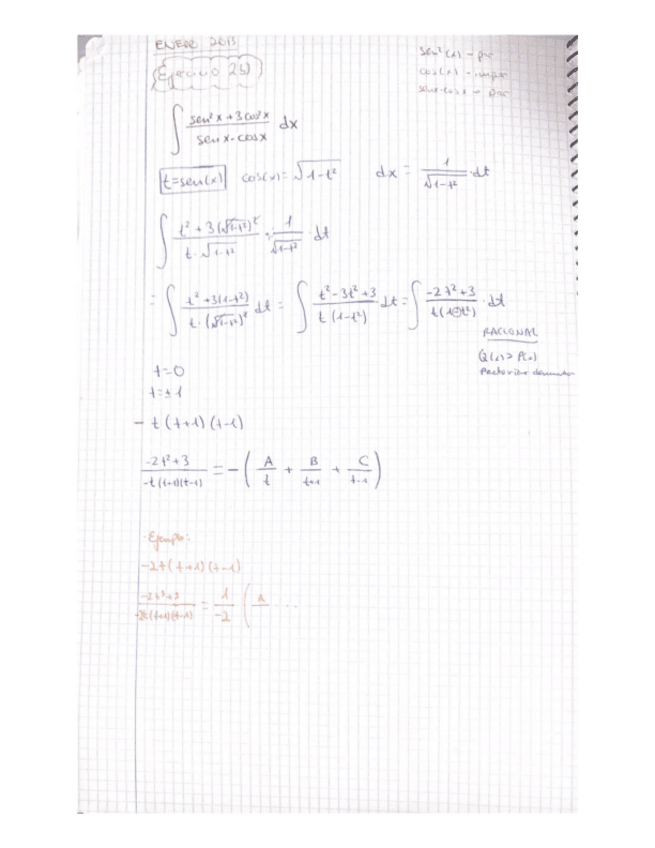 ENERO 2013
Ejercicio 2b)
sen²(x) → par
cos(x) → impar
senx·cosx → par
∫ (sen²x + 3cos²x)/(senx·cosx) dx
t=sen(x) cos(x)= √(1-t²) dx = 1/√(1-t²) ·dt
∫ (t² + 3(√(1-t²))²)/(t·√(1-t²)) · 1/√(1-t²) · dt
= ∫ (t² + 3(1-t²))/(t·(√(1-t²))²) dt = ∫ (t²-3t²+3)/(t(1-t²)) dt = ∫ (-2t²+3)/(t(1-t²)) · dt
RACIONAL
Q(x) > P(x)
Factorizar
t=0
t=±1
- t(t+1)(t-1)
(-2t²+3)/(-t(t+1)(t-1)) = -( A/t + B/(t+1) + C/(t-1) )
Ejemplo:
-2t(t+1)(t-1)
(-2t²+3)/(-2t(t+1)(t-1)) = 1/-2 ( A ...